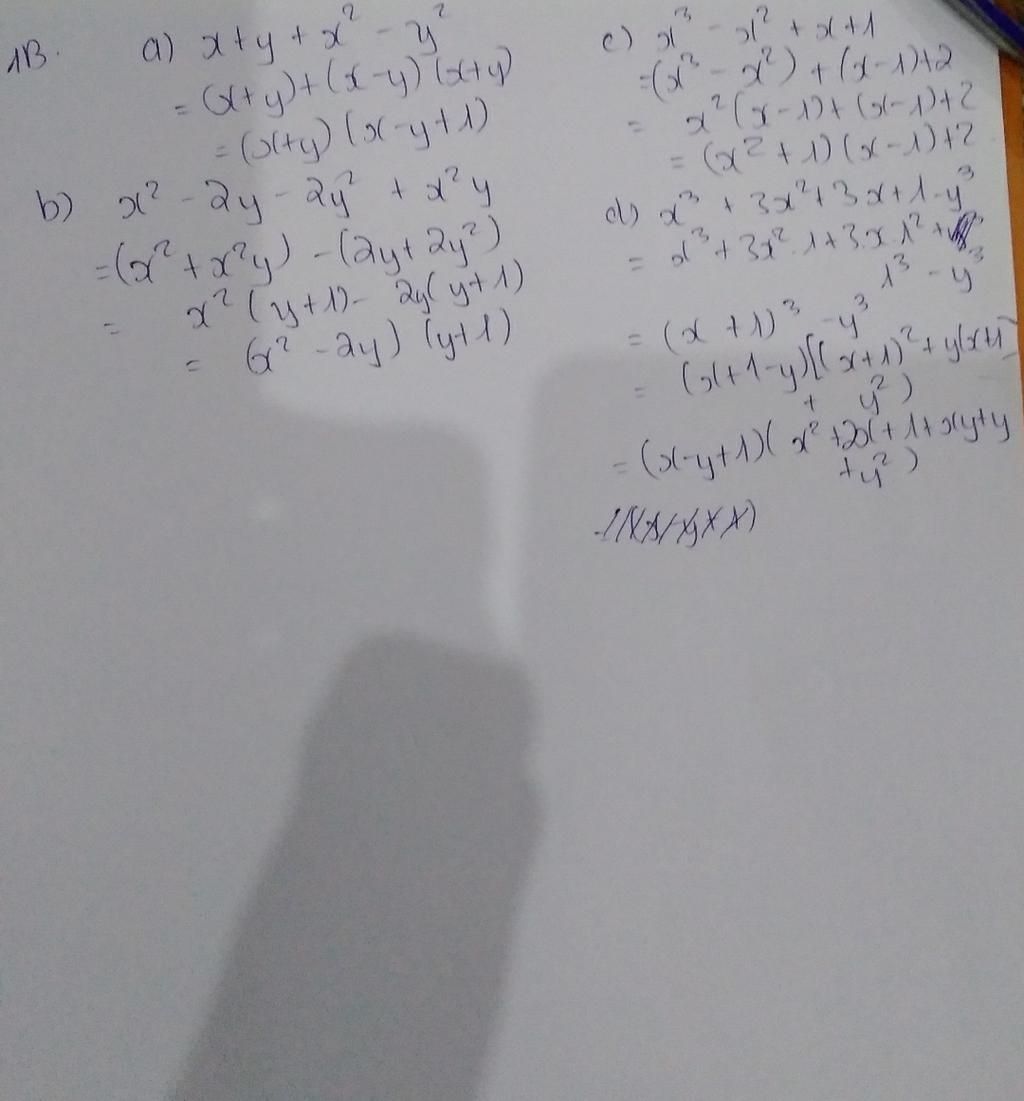 1B. a) x+y+x² - y²
= (x+y)+(x-y)(x+y)
= (x+y)(x-y+1)
b) x² - 2y - 2y² + x²y
=(x²+x²y) - (2y+2y²)
= x²(y+1) - 2y(y+1)
= (x² - 2y) (y+1)
c) x³ - x² + x+1
=(x³ - x²) + (x-1)+2
= x²(x-1)+(x-1)+2
= (x²+1)(x-1)+2
d) x³ + 3x²+3x+1-y³
= x³+3x².1+3.x.1²+
1³ - y³
= (x+1)³ -y³
= (x+1-y)[(x+1)²+y(x+1)
+ y²)
= (x-y+1)(x²+2x+1+xy+y
+y²)